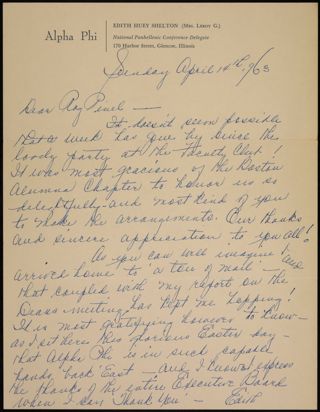 Alpha Phi
EDITH HUEY SHELTON (Mrs. Leroy G.)
National Panhellenic Conference Delegate
170 Harbor Street, Glencoe, Illinois
Sunday April 14th, 1963
Dear Ray
It doesn't seem possible
that a week has gone by since the
lovely party at the Faculty Club!
It was most gracious of the Boston
Alumnae Chapter to honor us so
delightfully and most kind of you
to make the arrangements. Our thanks
and sincere appreciation to you all!
As you can well imagine I
arrived home to 'a ton of mail' - and
that coupled with my report on the
Deans meeting has kept me hopping!
It is most gratifying however to know -
as I sit here this glorious Easter day -
that Alpha Phi is in such capable
hands 'back East' - and I know I express
the thanks of the entire Executive Board
when I say 'Thank you' - Edith